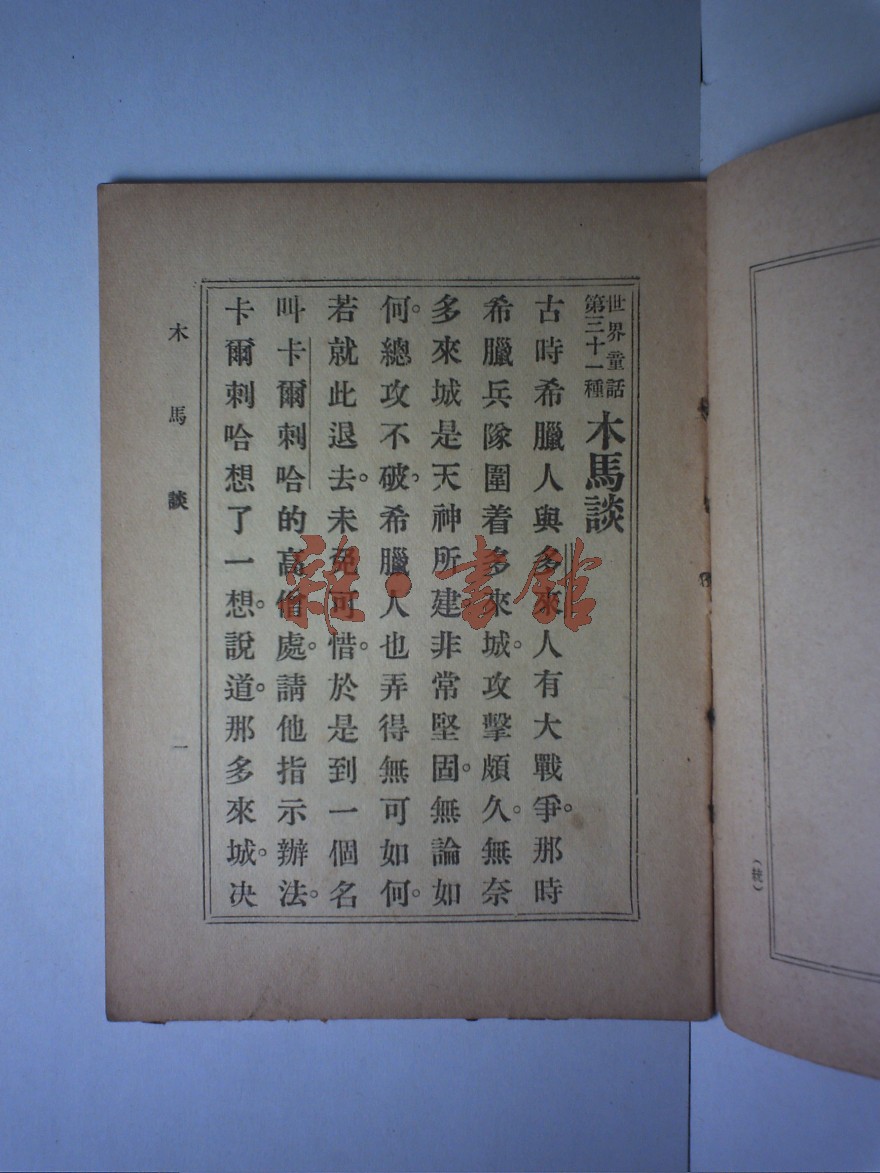 世界童話
第三十一種
木馬談
古時希臘人與多來人有大戰爭。那時
希臘兵隊圍着多來城。攻擊頗久。無奈
多來城是天神所建非常堅固。無論如
何。總攻不破。希臘人也弄得無可如何。
若就此退去。未免可惜。於是到一個名
叫卡爾刺哈的高僧處。請他指示辦法。
卡爾刺哈想了一想。說道。那多來城。决
木馬談
一
雜·書館